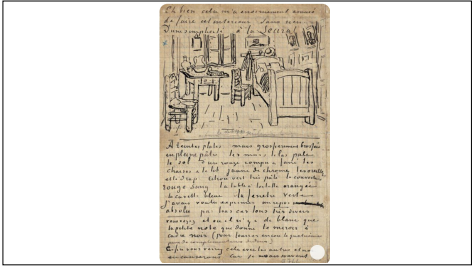 Eh bien cela m'a énormément amusé
de faire cet intérieur sans rien
d'une simplicité à la Seurat
A teintes plates mais grossièrement brossées
en pleine pâte les murs lilas pâle
le sol d'un rouge rompu & fané les
chaises & le lit jaune de chrome les oreillers
et le drap citron vert très pâle la couverture
rouge sang la table à toilette orangée
la cuvette bleue la fenêtre verte
j'avais voulu exprimer un repos
absolu par tous ces tons très divers
vous voyez et où il n'y a de blanc que
la petite note que donne le miroir à
cadre noir